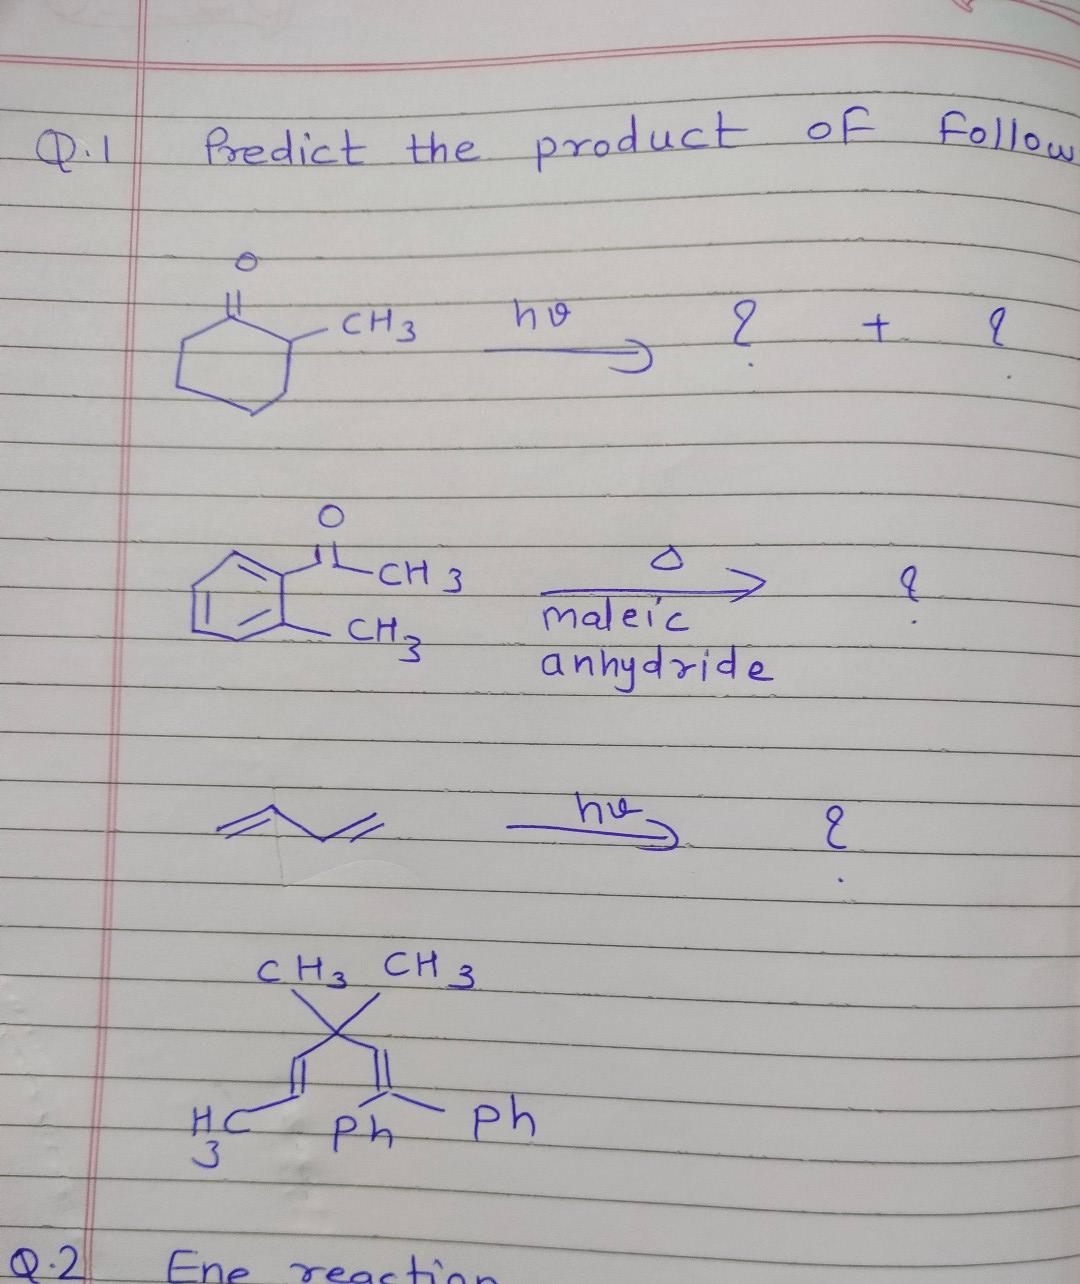 Q.1 Predict the product of Follow
O
CH3 hν ? + ?
O
CH3 Δ ?
CH3 maleic
anhydride
hν ?
CH3 CH3
H3C Ph Ph
Q.2 Ene reaction